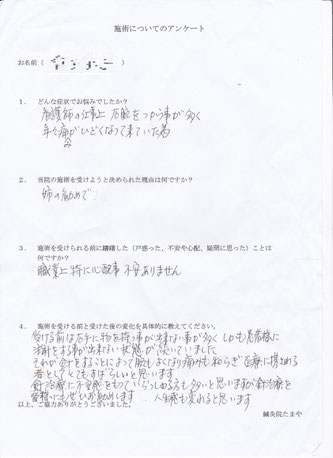 施術についてのアンケート
お名前（
1． どんな症状でお悩みでしたか？
看護師の仕事上 右腕をつかう事が多く
年々痛みがひどくなって来ていた為
2． 当院の施術を受けようと決められた理由は何ですか？
姉の勧めで．
3． 施術を受けられる前に躊躇した（戸惑った、不安や心配、疑問に思った）ことは
何ですか？
職業上特に心配事 不安ありません
4． 施術を受ける前と受けた後の変化を具体的に教えてください。
受ける前は右手に物を持つ事が出来ない事が多く しかも患者様に
注射をする事が出来ない状態が続いていました
それが針をすることによって腕もよくなり痛みも和らぎ 医療に携わる
者としてとてもすばらしいと思います
針治療に不信感をもっていらっしゃる方も多いと思いますが針治療を
皆様にもぜひお勧めします． 人生感も変わると思います
以上、ご協力ありがとうございました。
鍼灸院たまや